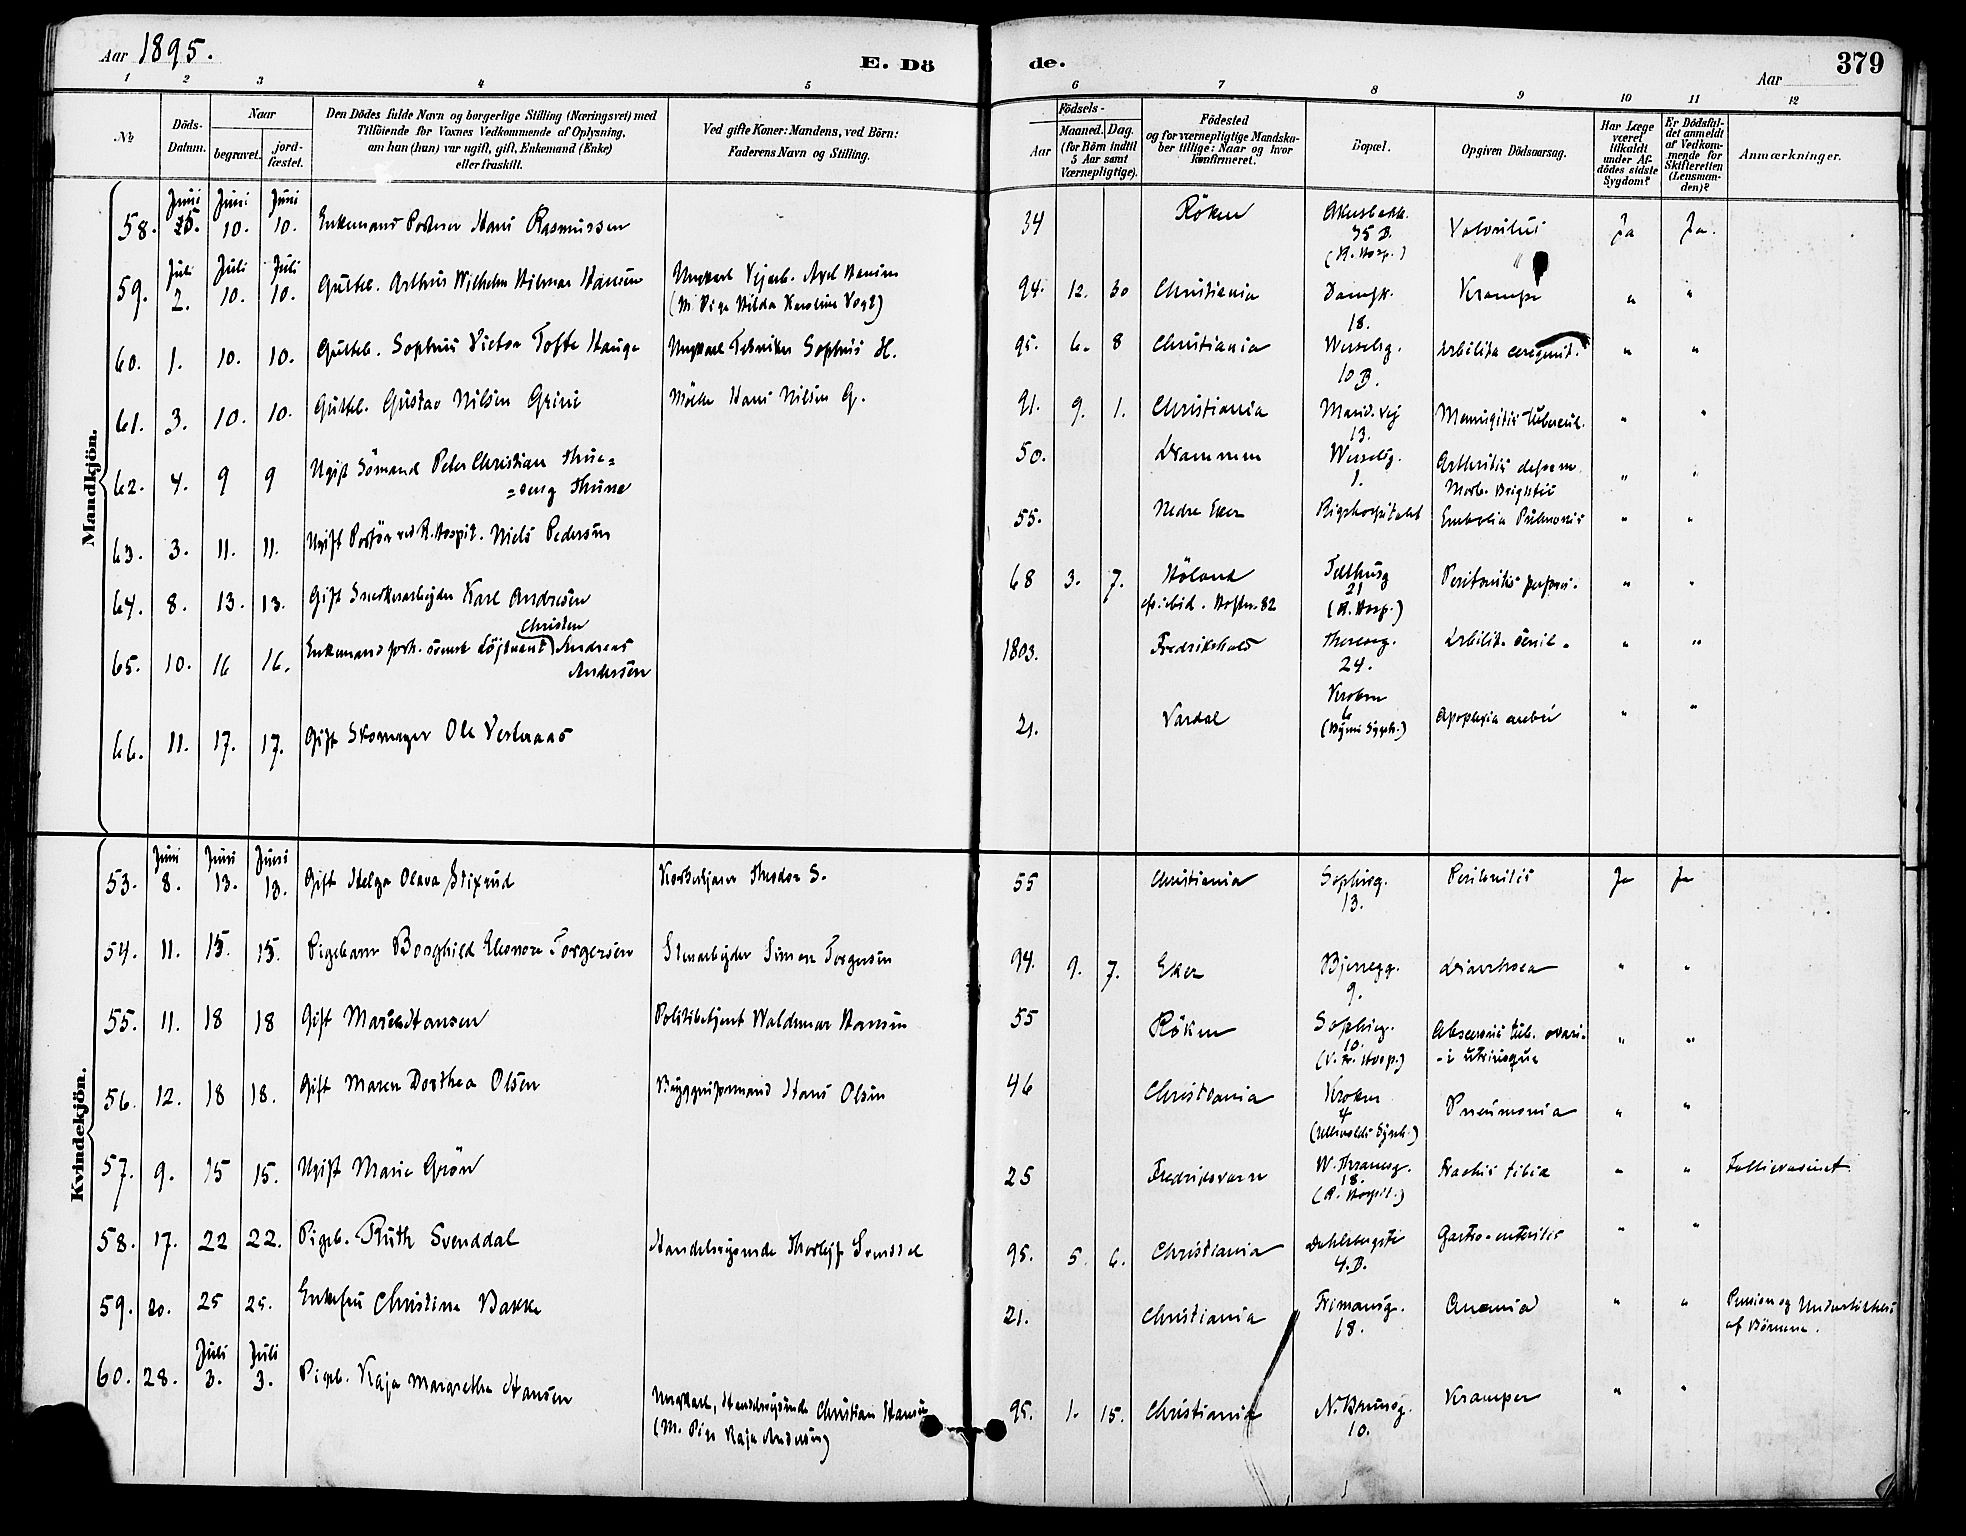 Aar 1895.
E. Dö
de.
Aar
379
1 2 3 4 5 6 7 8 9 10 11 12
No
Döds-Datum.
Naar
begravet.
jord-fæstet.
Den Dödes fulde Navn og borgerlige Stilling (Næringsvei) med
Tilföiende for Voxnes Vedkommende af Oplysning,
om han (hun) var ugift, gift, Enkemand (Enke)
eller fraskilt.
Ved gifte Koner: Mandens, ved Börn:
Faderens Navn og Stilling.
Födsels-
Aar
Maaned. Dag.
(for Börn indtil
5 Aar samt
Værnepligtige).
Födested
og for værnepligtige Mandska-
ber tillige: Naar og hvor
konfirmeret.
Bopæl.
Opgiven Dödsaarsag.
Har Læge
været
tilkaldt
under Af-
dödes sidste
Sygdom?
Er Dödsfal-
det anmeldt
af Vedkom-
mende for
Skifteretten
(Lensman-
den)?
Anmærkninger.
Mandkjön.
Juni Juni Juni
58. 25. 10. 10. Enkemand Hans Rasmussen 34 Röken 35 B. (R. Hosp.) Ja Ja.
Juli Juli Juli
59. 2. 10. 10. Gutteb. Arthur Wilhelm Hilmar Hansen Ungkarl Axel Hansen
(M. Pige Hilda Karoline Vogt) 94. 12. 30 Christiania 18. Krampe " "
60. 1. 10. 10. Gutteb. Sophus Victor Tofte Hauge Ungkarl Tekniker Sophus H. 95. 6. 8 Christiania Wesselsg. 10 B. " "
61. 3. 10. 10. Guttb. Gustav Nilsen Grini Hans Nilsen G. 91. 9. 1. Christiania Marid. vej 13. Meningitis tubercul. " "
62. 4. 9 9 Ugift Sömand Peter Christian Thue=
=sen Thune 50. Drammen Wesselsg. 1. Arthritis deform.
Morb. Brightii " "
63. 3. 11. 11. Ugift Portör ved R. Hospit. Niels Pedersen 55. Nedre Eker Rigshospitalet Embolia Pulmonis " "
64. 8. 13. 13. Gift Snedkerarbejder Karl Andresen 68 3. 7. Höland 82 Telthusg 21 (R. Hosp.) Peritonitis perfor. " "
65. 10. 16 16. Enkemand Löjtnant Christen Andreas
Andersen 1803. Fredrikshald Theresesg. 24. Debilit. senil. " "
66. 11. 17. 17. Gift Skomager Ole Vesteraas 21. Vardal Kroken 6 Apoplexia cerebri " "
Kvindekjön.
Juni Juni Juni
53. 8. 13. 13. Gift Helga Olava Stixrud Theodor S. 55 Christiania Sophiesg. 13. Peritonitis Ja Ja
54. 11. 15. 15. Pigebarn Borghild Eleonora Torgersen Stenarbejder Simen Torgersen 94. 9. 7. Eker Bjerregg. 9. Diarrhoea " "
55. 11. 18 18 Gift Maren Hansen Politibetjent Waldemar Hansen 55 Röken Sophiesg. 10. Abscessus tub. ovari-
-i utriusque " "
56. 12. 18 18. Gift Maren Dorthea Olsen Bryggeriformand Hans Olsen 46 Christiania Kroken 4 (Ullevolds Sygeh.) Pneumonia " "
57. 9. 15 15. Ugift Marie Grön 25 Fredriksværn W. Thranesg. 18. (R. Hospit.) Fractus tibia " " Fattigvæsenet
58. 17. 22 22. Pigeb. Ruth Svenddal Handelsrejsende Thorleif Svenddal 95. 5. 6. Christiania Dahlsbergsti 4. B. Gastro-enteritis " "
59. 20. 25 25. Enkefru Christine Bakke 21. Christiania Frimansg. 18. Anæmia " " Pension og Understöttelse
af Börnene.
Juli Juli
60. 28. 3. 3. Pigeb. Kaja Margrethe Hansen Ungkarl, Handelsrejsende Christian Hansen
(M. Pige Kaja Andersen) 95. 1. 15. Christiania N. Bruunsg. 10. Kramper " "